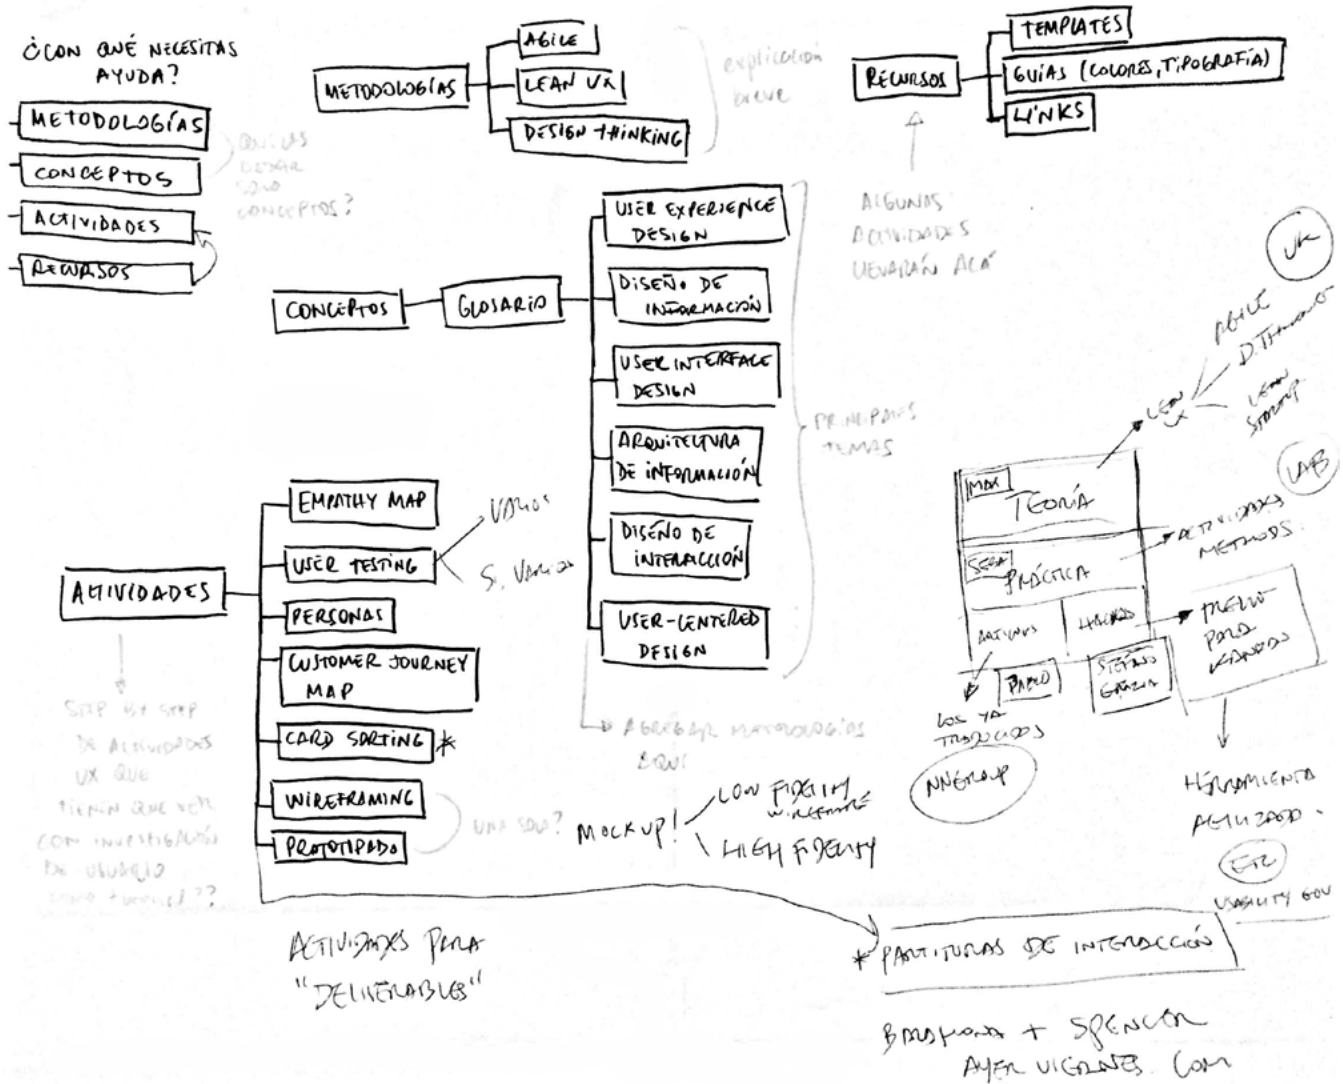 ¿CON QUÉ NECESITAS
AYUDA?
METODOLOGÍAS
CONCEPTOS
ACTIVIDADES
RECURSOS
SOLO
CONCEPTOS?
METODOLOGÍAS
AGILE
LEAN UX
DESIGN THINKING
explicación
breve
RECURSOS
TEMPLATES
GUÍAS (COLORES, TIPOGRAFÍA)
LINKS
ALGUNAS
ACTIVIDADES
LLEVARÁN ACÁ
CONCEPTOS
GLOSARIO
USER EXPERIENCE
DESIGN
DISEÑO DE
INFORMACIÓN
USER INTERFACE
DESIGN
ARQUITECTURA
DE INFORMACIÓN
DISEÑO DE
INTERACCIÓN
USER-CENTERED
DESIGN
PRINCIPALES
TEMAS
AGREGAR METODOLOGÍAS
AQUÍ
ACTIVIDADES
EMPATHY MAP
USER TESTING
VARIOS
SI, VARIOS
PERSONAS
CUSTOMER JOURNEY
MAP
CARD SORTING *
WIREFRAMING
PROTOTIPADO
UNA SOLA?
MOCKUP!
LOW FIDELITY
WIREFRAME
HIGH FIDELITY
STEP BY STEP
DE ACTIVIDADES
UX QUE
TIENEN QUE VER
CON INVESTIGACIÓN
DE USUARIO
ACTIVIDADES PARA
"DELIVERABLES"
* PARTITURAS DE INTERACCIÓN
BARAHONA + SPENCER
AYER VIERNES.COM
AGILE
LEAN
UX
LEAN
STARTUP
TEORÍA
PRÁCTICA
ACTIVIDADES
METHODS
PABLO
LOS YA
TRADUCIDOS
NNGROUP
PARA
HERRAMIENTA
USABILITY GOV